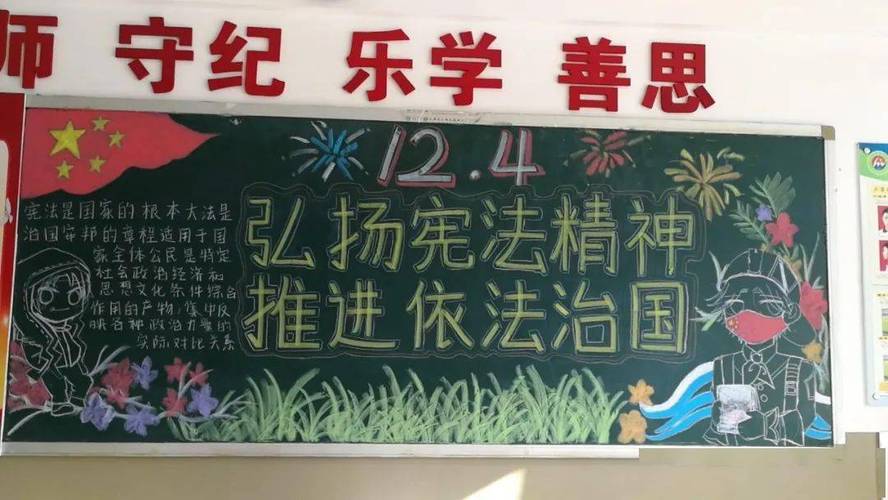 师 守纪 乐学 善思
12.4
弘扬宪法精神
推进依法治国
宪法是国家的根本大法是
治国安邦的章程适用于国
家全体公民是特定
社会政治经济和
思想文化条件综合
作用的产物,集中反
映各种政治力量的
实际对比关系